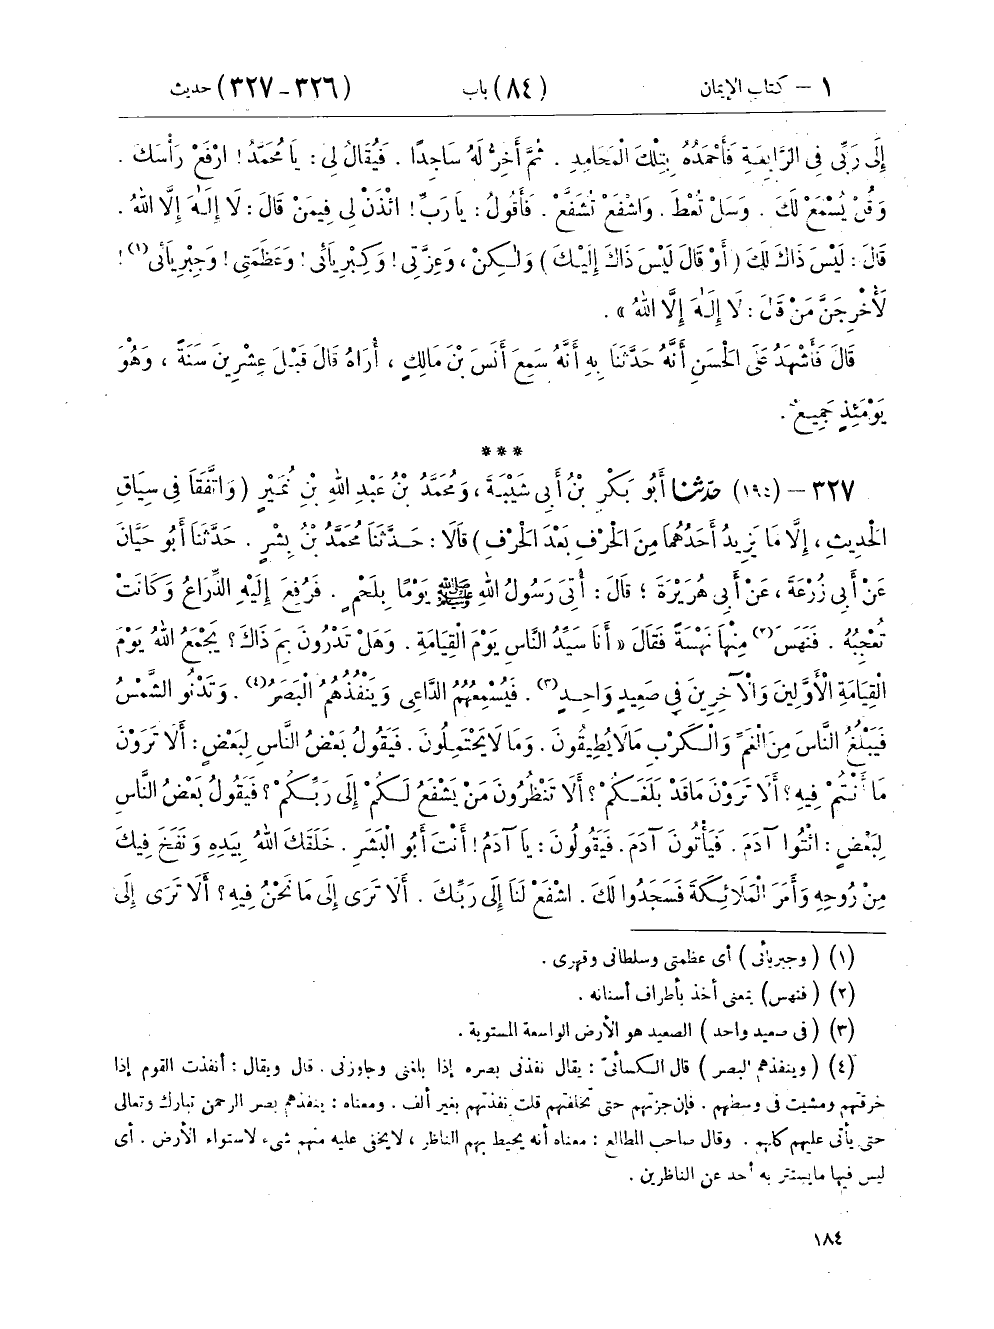 ١ – كتاب الإيمان (٨٤) باب (٣٢٦-٣٢٧) حديث
إِلَى رَبِّي فِي الرَّابِعَةِ فَأَحْمَدُهُ بِتِلْكَ الْمَحَامِدِ . ثُمَّ أَخِرُّ لَهُ سَاجِدًا . فَيُقَالُ لِي : يَا مُحَمَّدُ ! ارْفَعْ رَأْسَكَ .
وَقُلْ يُسْمَعْ لَكَ . وَسَلْ تُعْطَ . وَاشْفَعْ تُشَفَّعْ . فَأَقُولُ : يَا رَبِّ ! ائْذَنْ لِي فِيمَنْ قَالَ : لَا إِلَـٰهَ إِلَّا اللهُ .
قَالَ : لَيْسَ ذَاكَ لَكَ ( أَوْ قَالَ لَيْسَ ذَاكَ إِلَيْكَ ) وَلَـٰكِنْ ، وَعِزَّتِي ! وَكِبْرِيَائِي ! وَعَظَمَتِي ! وَجِبْرِيَائِي (١) !
لَأُخْرِجَنَّ مَنْ قَالَ : لَا إِلَـٰهَ إِلَّا اللهُ » .
قَالَ فَأَشْهَدُ عَلَى الْحَسَنِ أَنَّهُ حَدَّثَنَا بِهِ أَنَّهُ سَمِعَ أَنَسَ بْنَ مَالِكٍ ، أُرَاهُ قَالَ قَبْلَ عِشْرِينَ سَنَةً ، وَهُوَ
يَوْمَئِذٍ جَمِيعٌ .
***
٣٢٧ – (١٩٤) حَدَّثَنَا أَبُو بَكْرِ بْنُ أَبِي شَيْبَةَ ، وَمُحَمَّدُ بْنُ عَبْدِ اللهِ بْنِ نُمَيْرٍ ( وَاتَّفَقَا فِي سِيَاقِ
الْحَدِيثِ ، إِلَّا مَا يَزِيدُ أَحَدُهُمَا مِنَ الْحَرْفِ بَعْدَ الْحَرْفِ ) قَالَا : حَدَّثَنَا مُحَمَّدُ بْنُ بِشْرٍ . حَدَّثَنَا أَبُو حَيَّانَ
عَنْ أَبِي زُرْعَةَ ، عَنْ أَبِي هُرَيْرَةَ ؛ قَالَ : أُتِيَ رَسُولُ اللهِ ﷺ يَوْمًا بِلَحْمٍ . فَرُفِعَ إِلَيْهِ الذِّرَاعُ وَكَانَتْ
تُعْجِبُهُ . فَنَهَسَ (٢) مِنْهَا نَهْسَةً فَقَالَ « أَنَا سَيِّدُ النَّاسِ يَوْمَ الْقِيَامَةِ . وَهَلْ تَدْرُونَ بِمَ ذَاكَ ؟ يَجْمَعُ اللهُ يَوْمَ
الْقِيَامَةِ الْأَوَّلِينَ وَالْآخِرِينَ فِي صَعِيدٍ وَاحِدٍ (٣) . فَيُسْمِعُهُمُ الدَّاعِي وَيَنْفُذُهُمُ الْبَصَرُ (٤) . وَتَدْنُو الشَّمْسُ
فَيَبْلُغُ النَّاسَ مِنَ الْغَمِّ وَالْكَرْبِ مَا لَا يُطِيقُونَ . وَمَا لَا يَحْتَمِلُونَ . فَيَقُولُ بَعْضُ النَّاسِ لِبَعْضٍ : أَلَا تَرَوْنَ
مَا أَنْتُمْ فِيهِ ؟ أَلَا تَرَوْنَ مَا قَدْ بَلَغَكُمْ ؟ أَلَا تَنْظُرُونَ مَنْ يَشْفَعُ لَكُمْ إِلَى رَبِّكُمْ ؟ فَيَقُولُ بَعْضُ النَّاسِ
لِبَعْضٍ : ائْتُوا آدَمَ . فَيَأْتُونَ آدَمَ . فَيَقُولُونَ : يَا آدَمُ ! أَنْتَ أَبُو الْبَشَرِ . خَلَقَكَ اللهُ بِيَدِهِ وَنَفَخَ فِيكَ
مِنْ رُوحِهِ وَأَمَرَ الْمَلَائِكَةَ فَسَجَدُوا لَكَ . اشْفَعْ لَنَا إِلَى رَبِّكَ . أَلَا تَرَى إِلَى مَا نَحْنُ فِيهِ ؟ أَلَا تَرَى إِلَى
(١) ( وجبريائى ) أى عظمتى وسلطانى وقهرى .
(٢) ( فنهس ) بمعنى أخذ بأطراف أسنانه .
(٣) ( فى صعيد واحد ) الصعيد هو الأرض الواسعة المستوية .
(٤) ( وينفذهم البصر ) قال الكسائىّ : يقال نفذنى بصره إذا بلغنى وجاوزنى . قال ويقال : أنفذت القوم إذا
خرقتهم ومشيت فى وسطهم . فإن جزتهم حتى تخلفتهم قلت نفذتهم بغير ألف . ومعناه : ينفذهم بصر الرحمن تبارك وتعالى
حتى يأتى عليهم كلهم . وقال صاحب المطالع : معناه أنه يحيط بهم الناظر ، لا يخفى عليه منهم شىء لاستواء الأرض . أى
ليس فيها ما يستتر به أحد عن الناظرين .
١٨٤